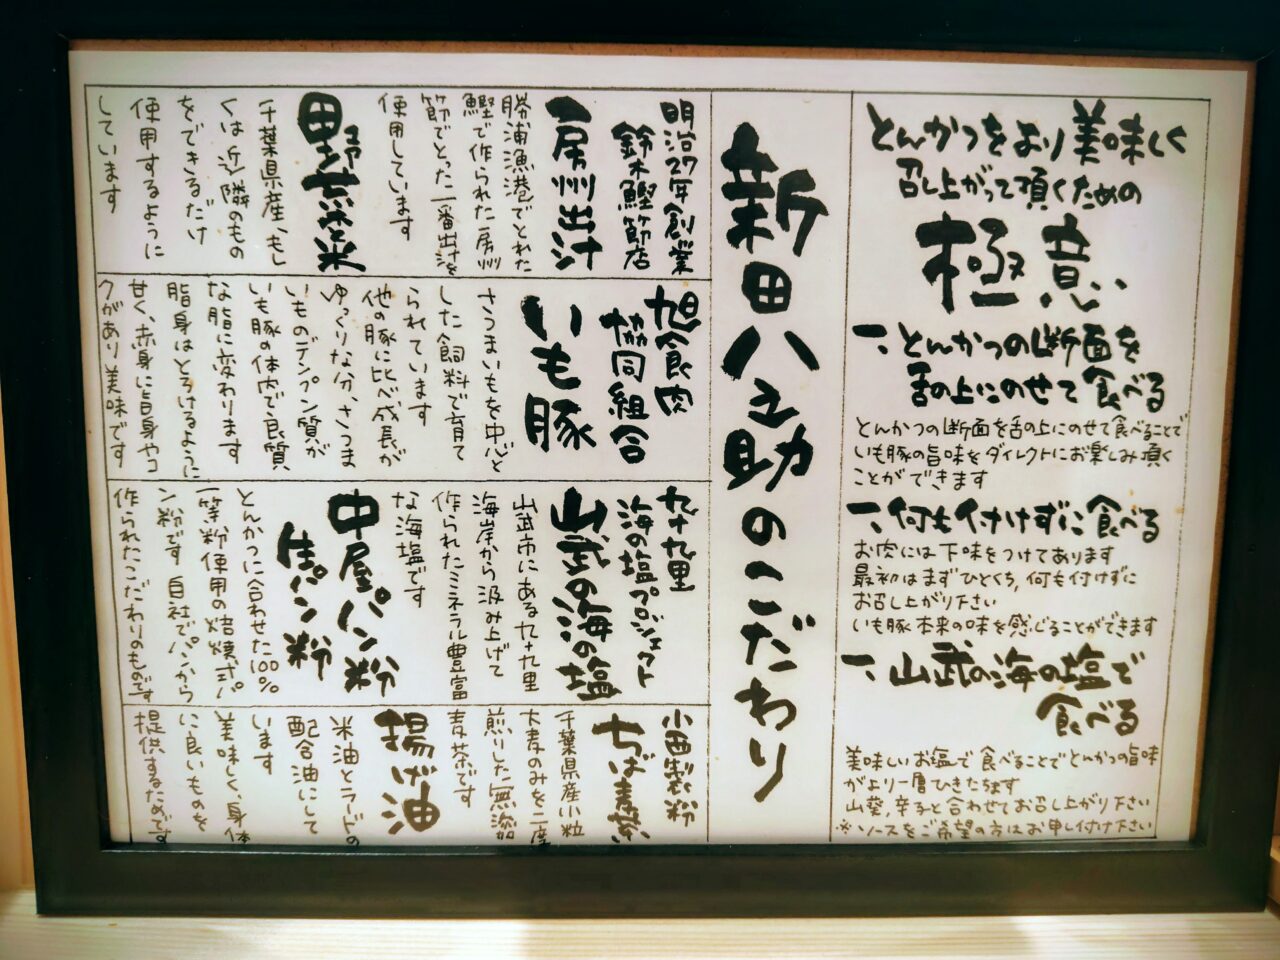 とんかつをより美味しく
召し上がって頂くための
極意
一、とんかつの断面を
舌の上にのせて食べる
とんかつの断面を舌の上にのせて食べることで
いも豚の旨味をダイレクトにお楽しみ頂く
ことができます
一、何も付けずに食べる
お肉には下味をつけてあります
最初はまずひとくち、何も付けずに
お召し上がり下さい
いも豚本来の味を感じることができます
一、山武の海の塩で
食べる
美味しいお塩で食べることでとんかつの旨味
がより一層ひきたちます
山葵、辛子と合わせてお召し上がり下さい
※ソースをご希望の方はお申し付け下さい
新田八之助のこだわり
明治27年創業
鈴木鰹節店
房州出汁
勝浦漁港でとれた
鰹で作られた房州
節でとった一番出汁を
使用しています
田野菜米
千葉県産、もし
くは近隣のもの
をできるだけ
使用するように
しています
旭食肉
協同組合
いも豚
さつまいもを中心と
した飼料で育て
られています
他の豚に比べ成長が
ゆっくりな分、さつま
いものデンプン質が
いも豚の体内で良質
な脂に変わります
脂身はとろけるように
甘く、赤身に旨身やコ
クがあり美味です
九十九里
海の塩プロジェクト
山武の海の塩
山武市にある九十九里
海岸から汲み上げて
作られたミネラル豊富
な海塩です
中屋パン粉
生パン粉
とんかつに合わせた100%
一等粉使用の焙焼式パ
ン粉です 自社でパンから
作られたこだわりのものです
小西製粉
ちば麦茶
千葉県産小粒
大麦のみを二度
煎りした無添加
麦茶です
揚げ油
米油とラードの
配合油にして
います
美味しく、身体
に良いものを
提供するためです